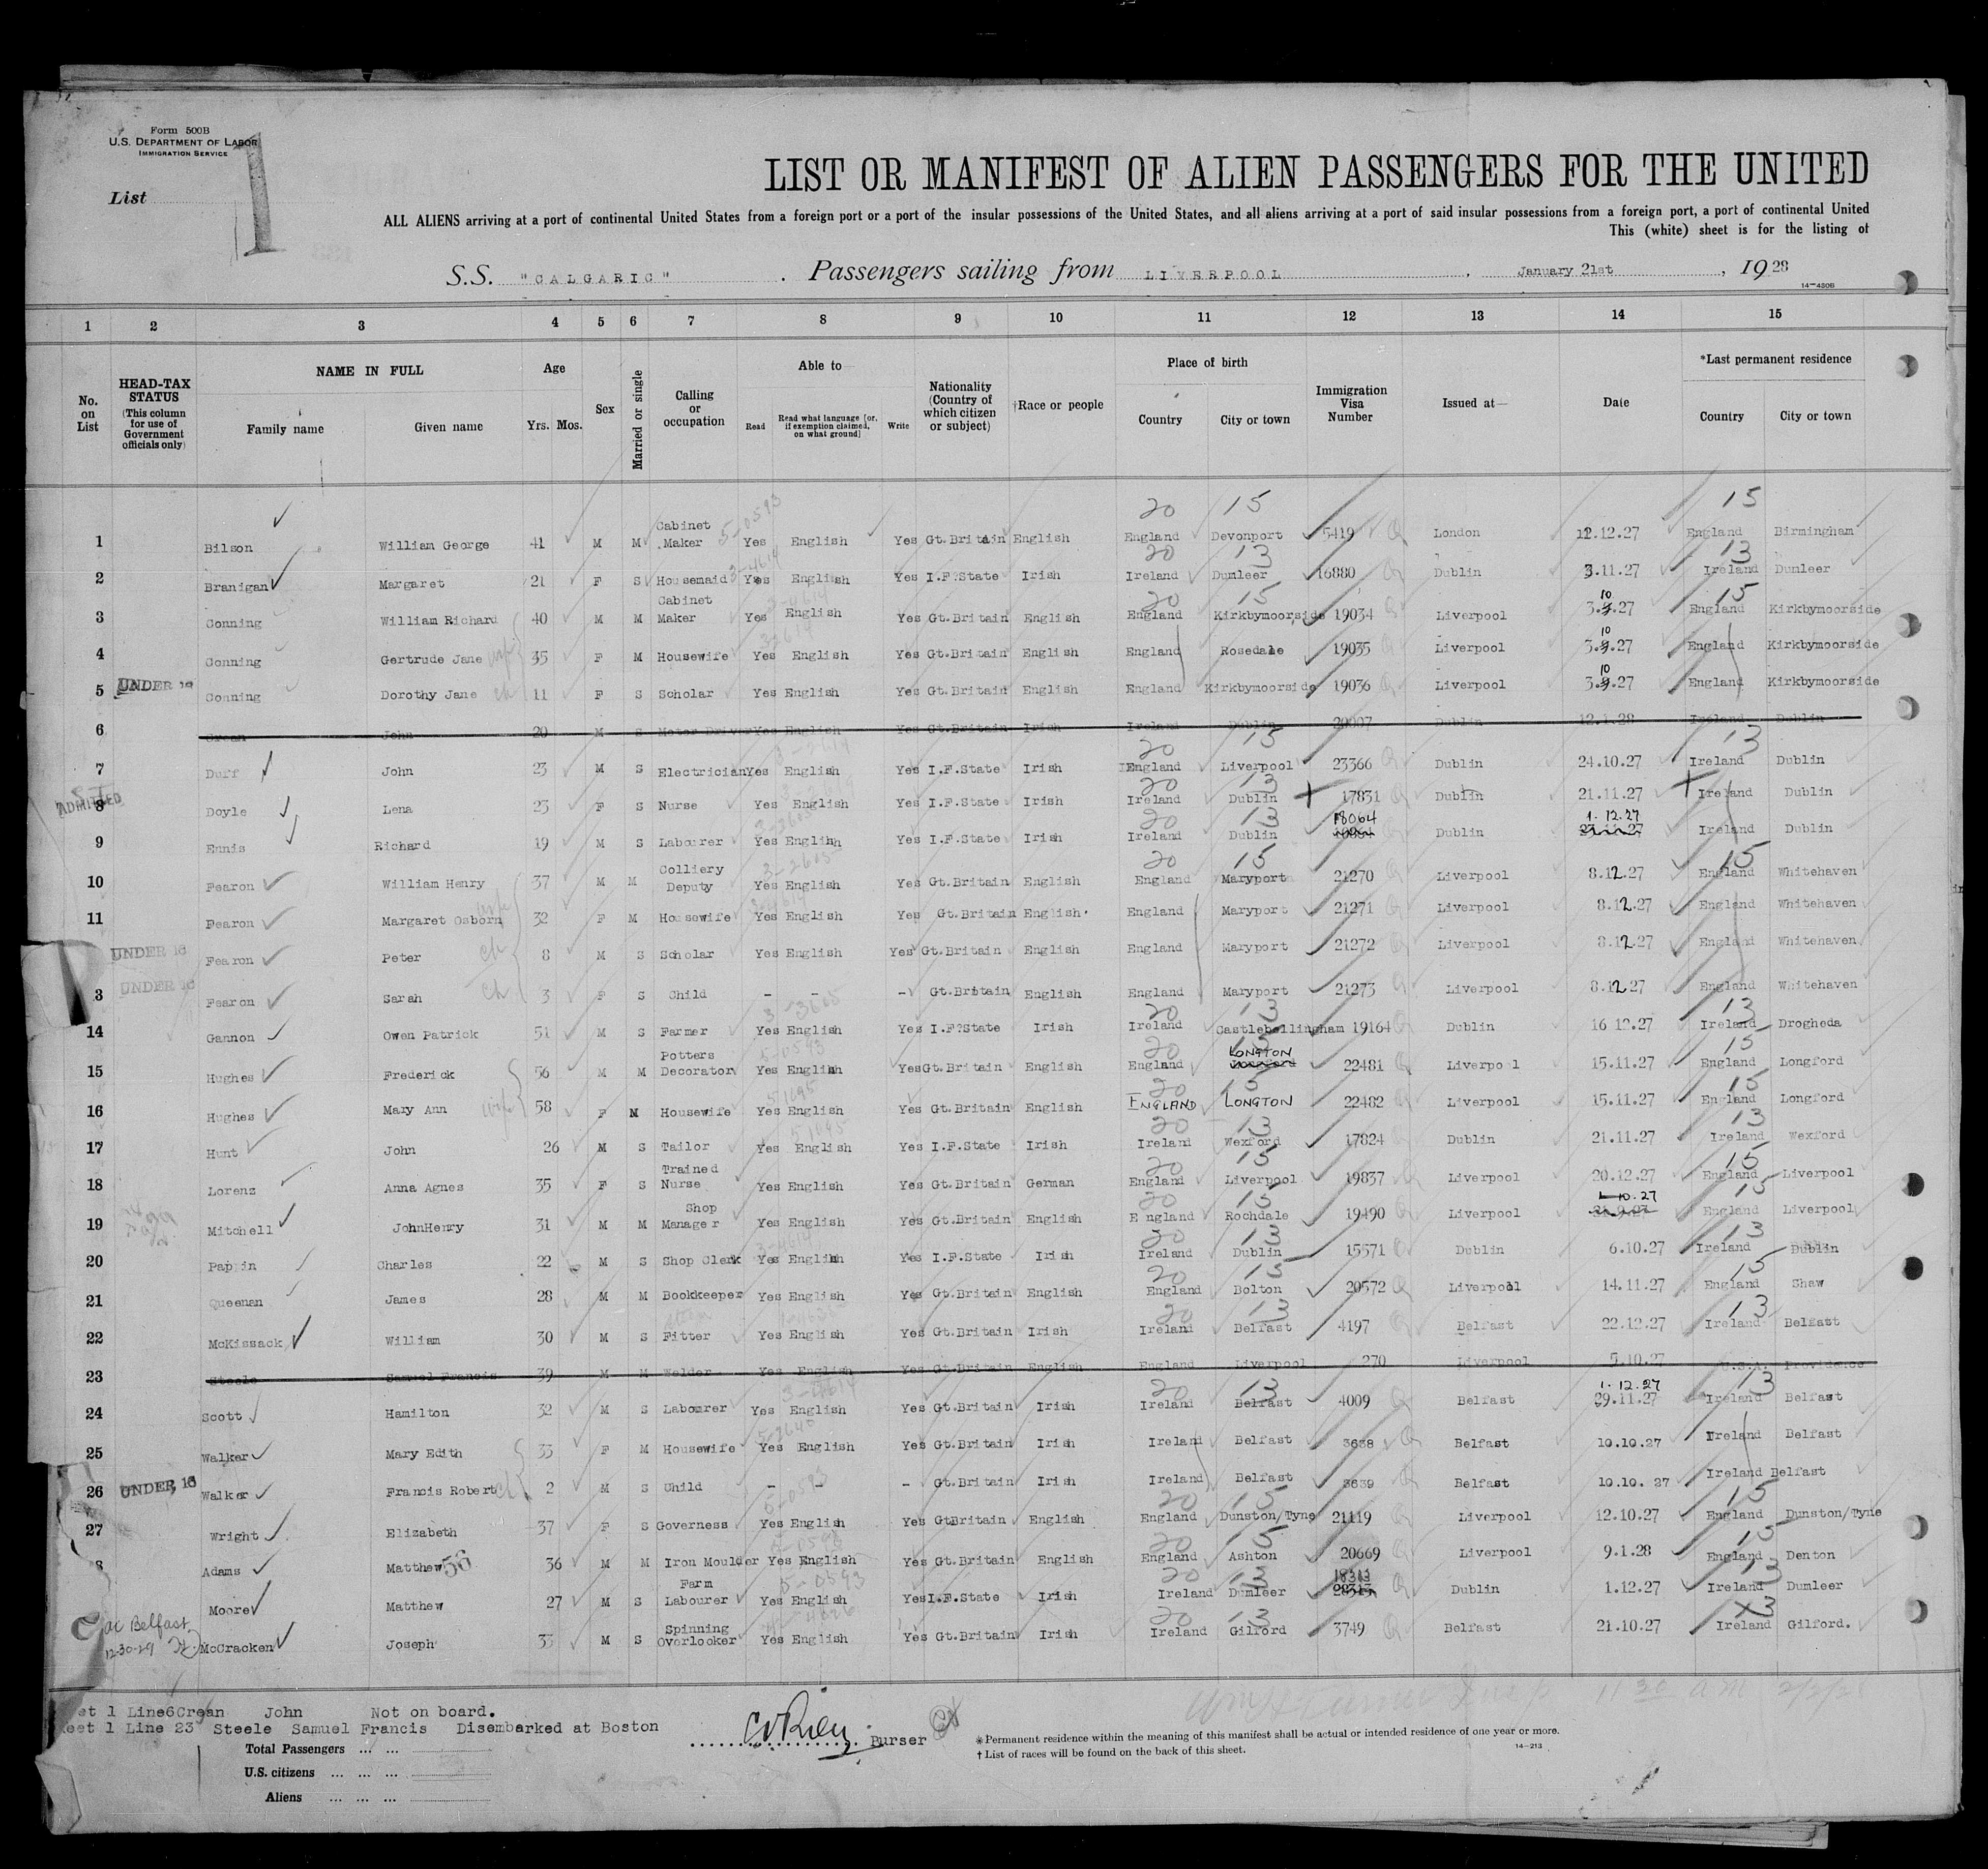 Form 500B
U.S. DEPARTMENT OF LABOR
IMMIGRATION SERVICE
List 1
LIST OR MANIFEST OF ALIEN PASSENGERS FOR THE UNITED
ALL ALIENS arriving at a port of continental United States from a foreign port or a port of the insular possessions of the United States, and all aliens arriving at a port of said insular possessions from a foreign port, a port of continental United
This (white) sheet is for the listing of
S.S. "CALGARIC" . Passengers sailing from LIVERPOOL , January 21st , 1928
14-430B
1 2 3 4 5 6 7 8 9 10 11 12 13 14 15
No. on List
HEAD-TAX STATUS (This column for use of Government officials only)
NAME IN FULL
Family name Given name
Age
Yrs. Mos.
Sex
Married or single
Calling or occupation
Able to
Read Read what language [or, if exemption claimed, on what ground] Write
Nationality (Country of which citizen or subject)
†Race or people
Place of birth
Country City or town
Immigration Visa Number
Issued at—
Date
*Last permanent residence
Country City or town
20 15 15
1 Bilson William George 41 M M Cabinet Maker 5-0593 Yes English Yes Gt.Britain English England Devonport 5419 London 12.12.27 England Birmingham
20 13 13
2 Branigan Margaret 21 F S Housemaid 3-4614 Yes English Yes I.F.State Irish Ireland Dumleer 16880 Dublin 3.11.27 Ireland Dumleer
20 15 15
3 Conning William Richard 40 M M Cabinet Maker Yes English Yes Gt.Britain English England Kirkbymoorside 19034 Liverpool 3.10.27 England Kirkbymoorside
4 Conning Gertrude Jane wife 35 F M Housewife Yes English Yes Gt.Britain English England Rosedale 19035 Liverpool 3.10.27 England Kirkbymoorside
5 UNDER 16 Conning Dorothy Jane ch 11 F S Scholar Yes English Yes Gt.Britain English England Kirkbymoorside 19036 Liverpool 3.10.27 England Kirkbymoorside
6 Crean John 20 M S Motor Driver Yes English Yes Gt.Britain Irish Ireland Dublin 20007 Dublin 12.1.28 Ireland Dublin
20 15 13
7 Duff John 23 M S Electrician Yes English Yes I.F.State Irish England Liverpool 23366 Dublin 24.10.27 Ireland Dublin
20 13
ADMITTED
8 Doyle Lena 23 F S Nurse Yes English Yes I.F.State Irish Ireland Dublin 17831 Dublin 21.11.27 Ireland Dublin
20 13 18064 1.12.27
9 Ennis Richard 19 M S Labourer Yes English Yes I.F.State Irish Ireland Dublin Dublin Ireland Dublin
20 15 15
10 Fearon William Henry 37 M M Colliery Deputy 3-2605 Yes English Yes Gt.Britain English England Maryport 21270 Liverpool 8.12.27 England Whitehaven
11 Fearon Margaret Osborn wife 32 F M Housewife Yes English Yes Gt.Britain English England Maryport 21271 Liverpool 8.12.27 England Whitehaven
UNDER 16 Fearon Peter ch 8 M S Scholar Yes English Yes Gt.Britain English England Maryport 21272 Liverpool 8.12.27 England Whitehaven
3 UNDER 16 Fearon Sarah ch 3 F S Child - - - Gt.Britain English England Maryport 21273 Liverpool 8.12.27 England Whitehaven
20 13 13
14 Gannon Owen Patrick 51 M S Farmer Yes English Yes I.F?State Irish Ireland Castlebellingham 19164 Dublin 16 12.27 Ireland Drogheda
20 15 15
15 Hughes Frederick 56 M M Potters Decorator 5-0593 Yes English Yes Gt.Britain English England LONGTON 22481 Liverpool 15.11.27 England Longford
20 15 15
16 Hughes Mary Ann wife 58 F M Housewife Yes English Yes Gt.Britain English ENGLAND LONGTON 22482 Liverpool 15.11.27 England Longford
20 13 13
17 Hunt John 26 M S Tailor Yes English Yes I.F.State Irish Ireland Wexford 17824 Dublin 21.11.27 Ireland Wexford
20 15 15
18 Lorenz Anna Agnes 35 F S Trained Nurse Yes English Yes Gt.Britain German England Liverpool 19837 Liverpool 20.12.27 England Liverpool
20 15 1-10.27 15
19 Mitchell JohnHenry 31 M M Shop Manager Yes English Yes Gt.Britain English England Rochdale 19490 Liverpool England Liverpool
20 13 13
20 Pappin Charles 22 M S Shop Clerk Yes English Yes I.F.State Irish Ireland Dublin 15571 Dublin 6.10.27 Ireland Dublin
20 15 15
21 Queenan James 28 M M Bookkeeper Yes English Yes Gt.Britain English England Bolton 20572 Liverpool 14.11.27 England Shaw
20 13 13
22 McKissack William 30 M S Fitter Yes English Yes Gt.Britain Irish Ireland Belfast 4197 Belfast 22.12.27 Ireland Belfast
23 Steele Samuel Francis 39 M M Welder Yes English Yes Gt.Britain English England Liverpool 270 Liverpool 5.10.27 U.S.A. Providence
20 13 1.12.27 13
24 Scott Hamilton 32 M S Labourer Yes English Yes Gt.Britain Irish Ireland Belfast 4009 Belfast 29.11.27 Ireland Belfast
25 Walker Mary Edith 33 F M Housewife Yes English Yes Gt.Britain Irish Ireland Belfast 3638 Belfast 10.10.27 Ireland Belfast
26 UNDER 16 Walker Francis Robert ch 2 M S Child - - - Gt.Britain Irish Ireland Belfast 3639 Belfast 10.10. 27 Ireland Belfast
20 15 15
27 Wright Elizabeth 37 F S Governess Yes English Yes GtBritain English England Dunston/Tyne 21119 Liverpool 12.10.27 England Dunston/Tyne
20 15 15
8 Adams Matthew 56 36 M M Iron Moulder Yes English Yes Gt.Britain English England Ashton 20669 Liverpool 9.1.28 England Denton
20 13 18313 13
Moore Matthew 27 M S Farm Labourer 5-0593 Yes English Yes I.F.State Irish Ireland Dumleer 28313 Dublin 1.12.27 Ireland Dumleer
20 13 13
ac Belfast
12-30-29
McCracken Joseph 33 M S Spinning Overlooker Yes English Yes Gt.Britain Irish Ireland Gilford 3749 Belfast 21.10.27 Ireland Gilford.
eet 1 Line6 Crean John Not on board.
eet 1 Line 23 Steele Samuel Francis Disembarked at Boston
Purser
Total Passengers ... ...
U.S. citizens ... ... ...
Aliens ... ... ...
* Permanent residence within the meaning of this manifest shall be actual or intended residence of one year or more.
† List of races will be found on the back of this sheet.
14-213